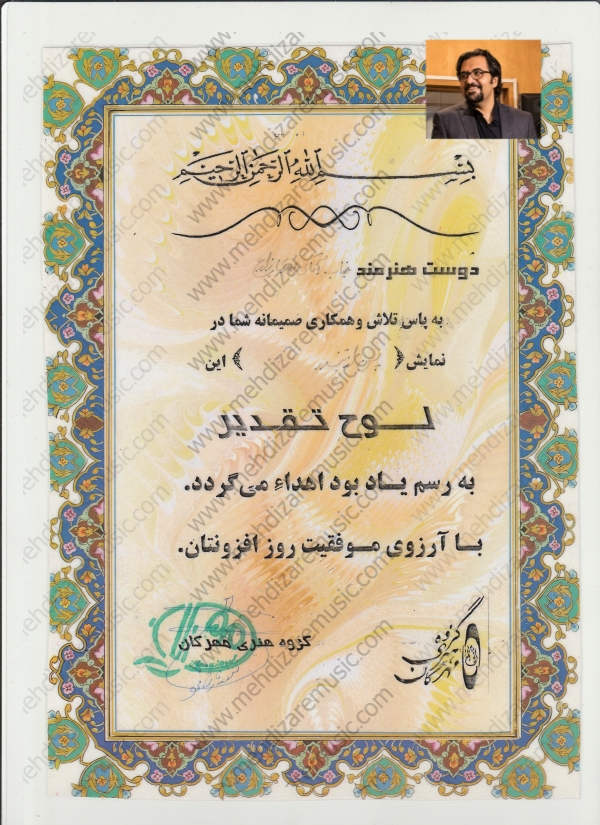 بسم الله الرحمن الرحیم
دوست هنرمند جناب آقای
به پاس تلاش و همکاری صمیمانه شما در
نمایش ﴿ ﴾ این
لوح تقدیر
به رسم یاد بود اهداء می‌گردد.
با آرزوی موفقیت روز افزونتان.
گروه هنری مهرگان
گروه هنری مهرگان
www.mehdizaremusic.com